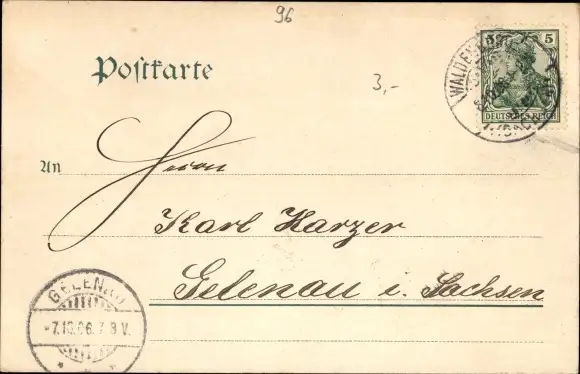 96
Postkarte
3,-
5 5
DEUTSCHES REICH
An Herrn
Karl Karzer
Gelenau i. Sachsen
GELENAU
-7.10.06. 7-8 V.